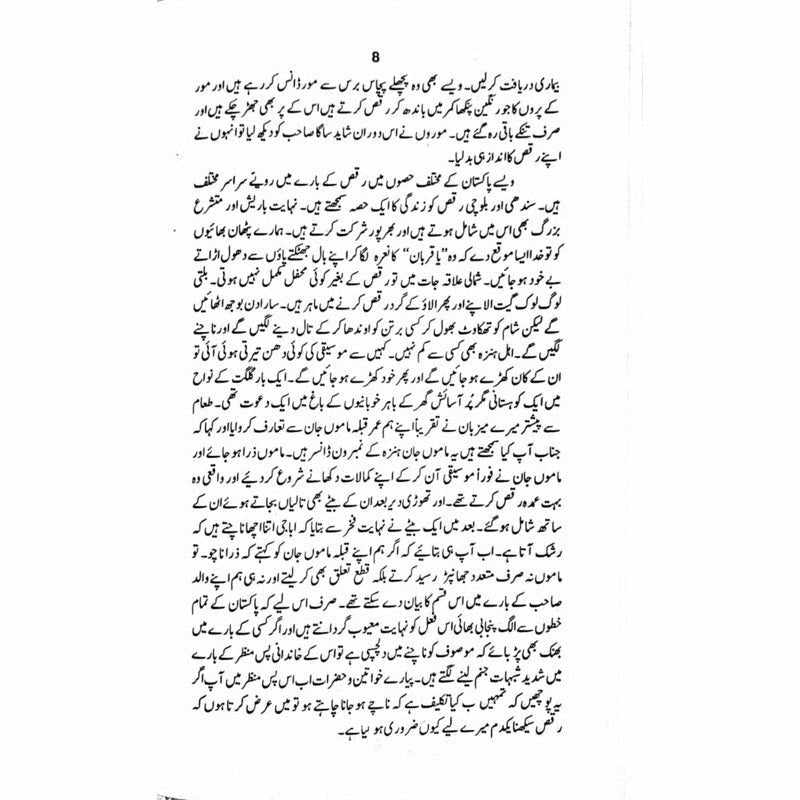 8
بیماری دریافت کر لیں۔ ویسے بھی وہ پچھلے پچاس برس سے مور ڈانس کر رہے ہیں اور مور
کے پروں کا جو رنگین پنکھا کمر میں باندھ کر رقص کرتے ہیں اس کے پر بھی جھڑ چکے ہیں اور
صرف تنکے باقی رہ گئے ہیں۔ موروں نے اس دوران شاید ساگا صاحب کو دیکھ لیا تو انہوں نے
اپنے رقص کا انداز ہی بدلیا۔
ویسے پاکستان کے مختلف حصوں میں رقص کے بارے میں رویّے سراسر مختلف
ہیں۔ سندھی اور بلوچی رقص کو زندگی کا ایک حصہ سمجھتے ہیں۔ نہایت باریش اور متشرع
بزرگ بھی اس میں شامل ہوتے ہیں اور بھرپور شرکت کرتے ہیں۔ ہمارے پٹھان بھائیوں
کو تو خدا ایسا موقع دے کہ وہ ”یا قربان“ کا نعرہ لگا کر اپنے بال جھٹکتے پاؤں سے دھول اڑاتے
بے خود ہو جائیں۔ شمالی علاقہ جات میں تو رقص کے بغیر کوئی محفل مکمل نہیں ہوتی۔ بلتی
لوگ لوک گیت الاپنے اور پھر الاؤ کے گرد رقص کرنے میں ماہر ہیں۔ سارا دن بوجھ اٹھائیں
گے لیکن شام کو تھکاوٹ بھول کر کسی برتن کو اوندھا کر کے تال دینے لگیں گے اور ناچنے
لگیں گے۔ اہل ہنزہ بھی کسی سے کم نہیں۔ کہیں سے موسیقی کی کوئی دھن تیرتی ہوئی آئی تو
ان کے کان کھڑے ہو جائیں گے اور پھر خود کھڑے ہو جائیں گے۔ ایک بار گلگت کے نواح
میں ایک کوہستانی مگر پُر آسائش گھر کے باہر خوبانیوں کے باغ میں ایک دعوت تھی۔ طعام
سے پیشتر میرے میزبان نے تقریباً اپنے ہم عمر قبلہ ماموں جان سے تعارف کروایا اور کہا کہ
جناب آپ کیا سمجھتے ہیں یہ ماموں جان ہنزہ کے نمبرون ڈانسر ہیں۔ ماموں ذرا ہو جائے اور
ماموں جان نے فوراً موسیقی آن کر کے اپنے کمالات دکھانے شروع کر دیئے اور واقعی وہ
بہت عمدہ رقص کرتے تھے۔ اور تھوڑی دیر بعد ان کے بیٹے بھی تالیاں بجاتے ہوئے ان کے
ساتھ شامل ہو گئے۔ بعد میں ایک بیٹے نے نہایت فخر سے بتایا کہ اباجی اتنا اچھا ناچتے ہیں کہ
رشک آتا ہے۔ اب آپ ہی بتائیے کہ اگر ہم اپنے قبلہ ماموں جان کو کہتے کہ ذرا ناچو۔ تو
ماموں نہ صرف متعدد جھانپڑ رسید کرتے بلکہ قطع تعلق بھی کر لیتے اور نہ ہی ہم اپنے والد
صاحب کے بارے میں اس قسم کا بیان دے سکتے تھے۔ صرف اس لیے کہ پاکستان کے تمام
خطوں سے الگ پنجابی بھائی اس فعل کو نہایت معیوب گردانتے ہیں اور اگر کسی کے بارے میں
بھنک بھی پڑ جائے کہ موصوف کو ناچنے میں دلچسپی ہے تو اس کے خاندانی پس منظر کے بارے
میں شدید شبہات جنم لینے لگتے ہیں۔ پیارے خواتین و حضرات اب اس پس منظر میں آپ اگر
یہ پوچھیں کہ تمہیں کیا تکلیف ہے کہ ناچے ہو جانا چاہتے ہو تو میں عرض کرتا ہوں کہ
رقص سیکھنا یکدم میرے لیے کیوں ضروری ہو گیا ہے۔